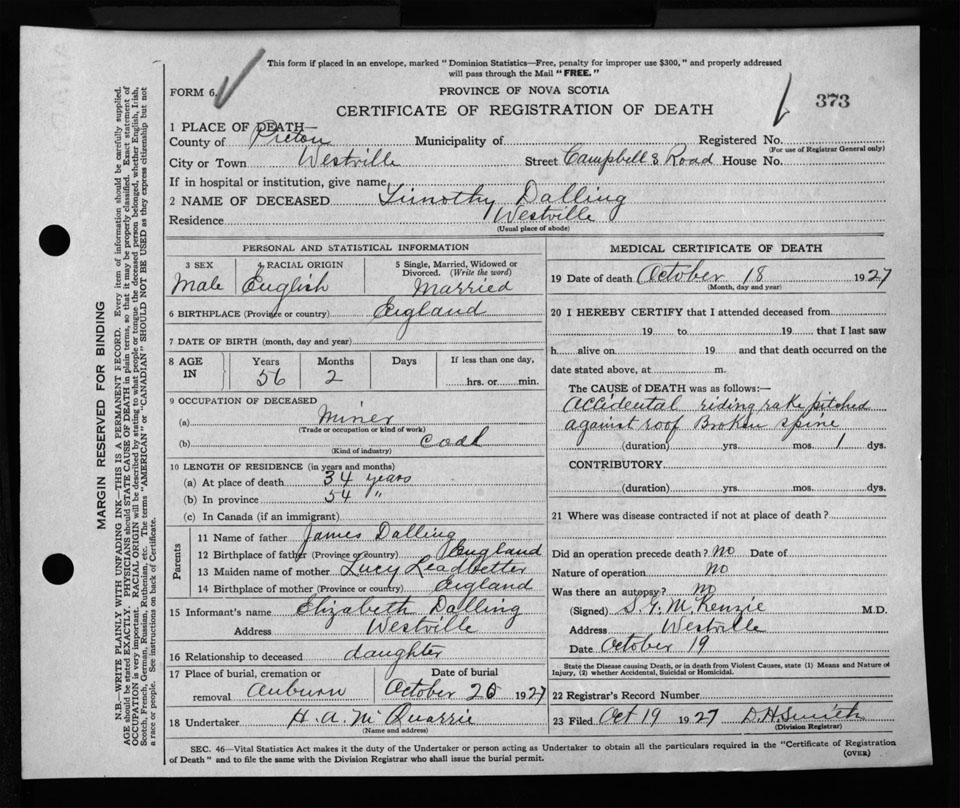 This form if placed in an envelope, marked "Dominion Statistics—Free, penalty for improper use $300," and properly addressed
will pass through the Mail "FREE."
FORM 6.
PROVINCE OF NOVA SCOTIA
373
CERTIFICATE OF REGISTRATION OF DEATH
1 PLACE OF DEATH—
County of Pictou Municipality of Registered No.
(For use of Registrar General only)
City or Town Westville Street Campbell's Road House No.
If in hospital or institution, give name
2 NAME OF DECEASED Timothy Dalling
Residence Westville
(Usual place of abode)
PERSONAL AND STATISTICAL INFORMATION
3 SEX 4 RACIAL ORIGIN 5 Single, Married, Widowed or
Divorced. (Write the word)
Male English Married
6 BIRTHPLACE (Province or country) England
7 DATE OF BIRTH (month, day and year)
8 AGE IN Years Months Days If less than one day,
56 2 hrs. or min.
9 OCCUPATION OF DECEASED
(a) Miner
(Trade or occupation or kind of work)
(b) Coal
(Kind of industry)
10 LENGTH OF RESIDENCE (in years and months)
(a) At place of death 34 years
(b) In province 54 "
(c) In Canada (if an immigrant)
Parents
11 Name of father James Dalling
12 Birthplace of father (Province or country) England
13 Maiden name of mother Lucy Leadbetter
14 Birthplace of mother (Province or country) England
15 Informant's name Elizabeth Dalling
Address Westville
16 Relationship to deceased daughter
17 Place of burial, cremation or Date of burial
removal Auburn October 20 1927
18 Undertaker H. A. McQuarrie
(Name and address)
MEDICAL CERTIFICATE OF DEATH
19 Date of death October 18 1927
(Month, day and year)
20 I HEREBY CERTIFY that I attended deceased from
19 to 19 that I last saw
h alive on 19 and that death occurred on the
date stated above, at m.
The CAUSE of DEATH was as follows:—
Accidental riding rake pitched
against roof Broken spine
(duration) yrs. mos. 1 dys.
CONTRIBUTORY
(duration) yrs. mos. dys.
21 Where was disease contracted if not at place of death?
Did an operation precede death? No Date of
Nature of operation No
Was there an autopsy? No
(Signed) S. G. McKenzie M.D.
Address Westville
Date October 19
State the Disease causing Death, or in death from Violent Causes, state (1) Means and Nature of
Injury, (2) whether Accidental, Suicidal or Homicidal.
22 Registrar's Record Number
23 Filed Oct 19 1927 D. H. Smith
(Division Registrar)
SEC. 46—Vital Statistics Act makes it the duty of the Undertaker or person acting as Undertaker to obtain all the particulars required in the "Certificate of Registration
of Death" and to file the same with the Division Registrar who shall issue the burial permit.
(OVER)
MARGIN RESERVED FOR BINDING
N.B.—WRITE PLAINLY WITH UNFADING INK—THIS IS A PERMANENT RECORD. Every item of information should be carefully supplied.
AGE should be stated EXACTLY. PHYSICIANS should STATE CAUSE OF DEATH in plain terms, so that it may be properly classified. Exact statement of
OCCUPATION is very important. RACIAL ORIGIN will be described by stating to what people or tongue the deceased person belonged, whether English, Irish,
Scotch, French, German, Russian, Ruthenian, etc. The terms "AMERICAN" or "CANADIAN" SHOULD NOT BE USED as they express citizenship but not
a race or people. See instructions on back of Certificate.